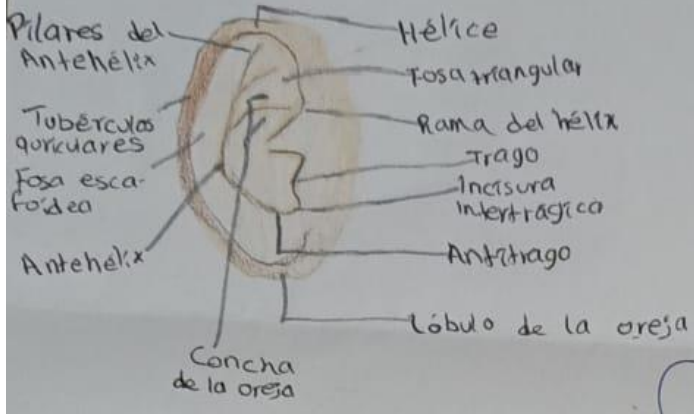 Pilares del
Antehélix
Tubérculos
auricuares
Fosa esca-
foidea
Antehélix
Concha
de la oreja
Hélice
Fosa triangular
Rama del hélix
Trago
Incisura
intertrágica
Antitrago
Lóbulo de la oreja